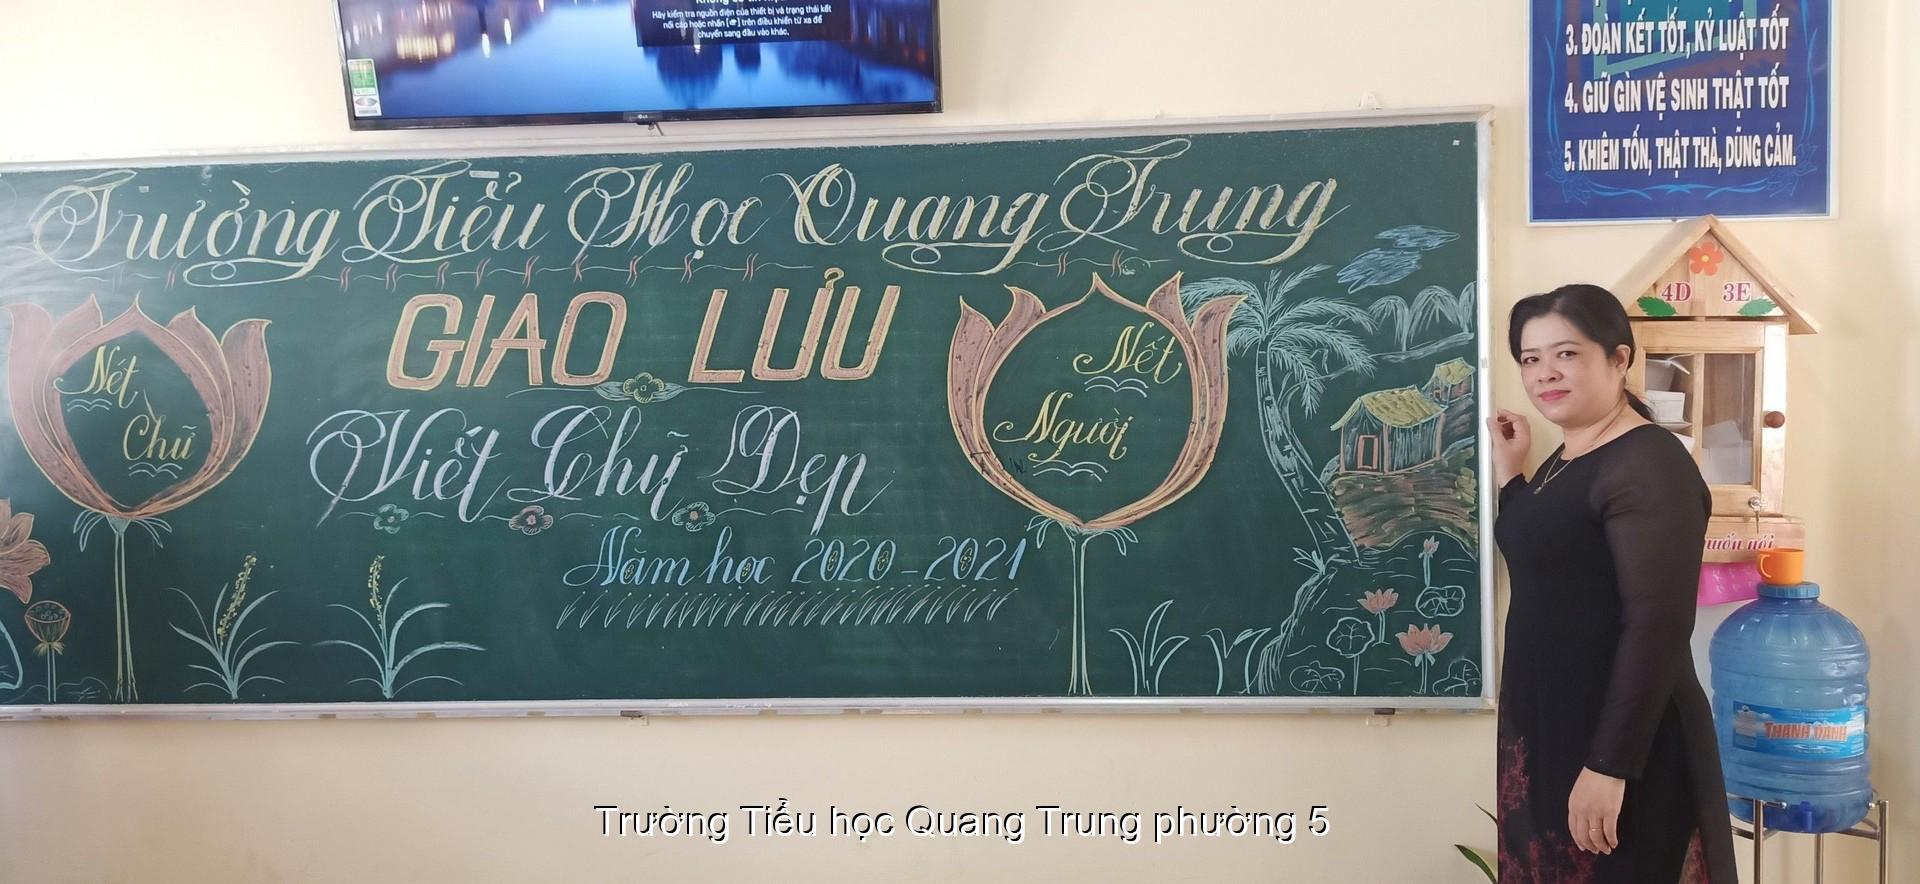 Hãy kiểm tra nguồn điện của thiết bị và trạng thái kết
nối cáp hoặc nhấn [ ] trên điều khiển từ xa để
chuyển sang đầu vào khác.
LG
3. ĐOÀN KẾT TỐT, KỶ LUẬT TỐT
4. GIỮ GÌN VỆ SINH THẬT TỐT
5. KHIÊM TỐN, THẬT THÀ, DŨNG CẢM.
Trường Tiểu Học Quang Trung
GIAO LƯU
Nét
Chữ
Viết Chữ Đẹp
Nết
Người
Năm học 2020-2021
4D 3E
muốn nói
THANH DANH
Trường Tiểu học Quang Trung phường 5